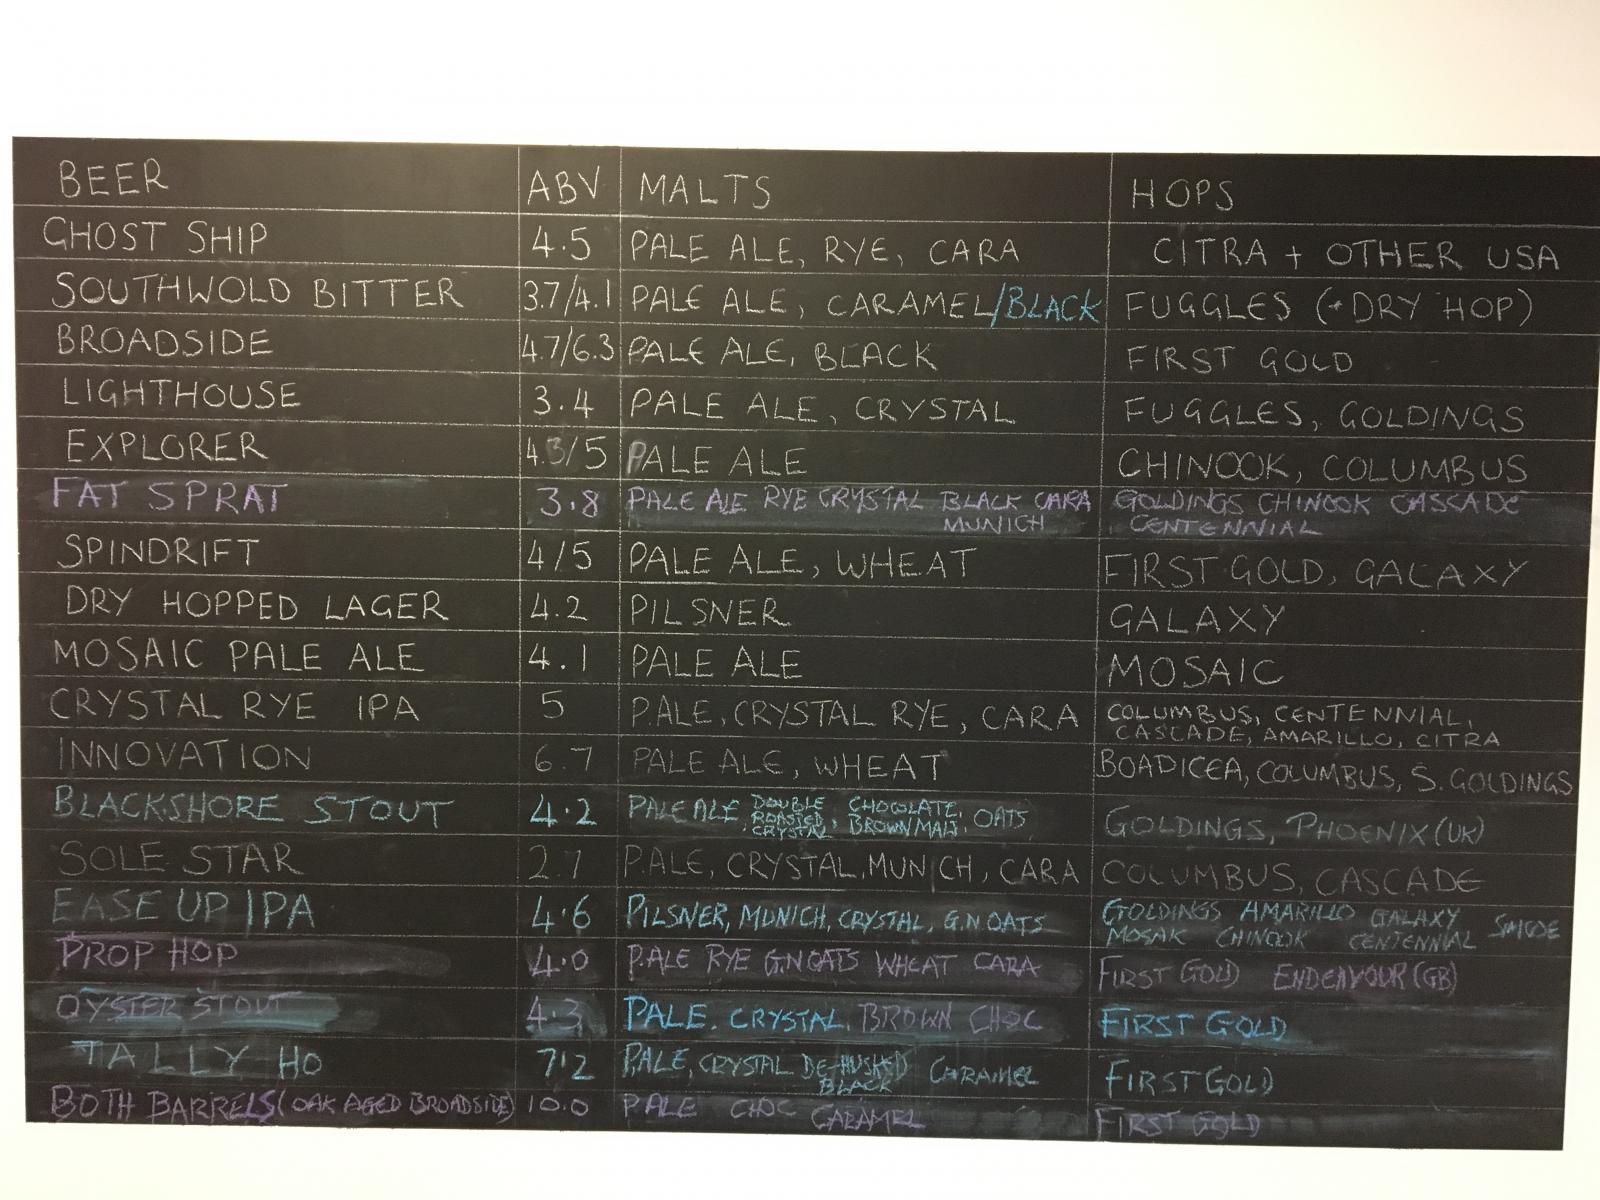 BEER ABV MALTS HOPS
GHOST SHIP 4.5 PALE ALE, RYE, CARA CITRA + OTHER USA
SOUTHWOLD BITTER 3.7/4.1 PALE ALE, CARAMEL/BLACK FUGGLES (+DRY HOP)
BROADSIDE 4.7/6.3 PALE ALE, BLACK FIRST GOLD
LIGHTHOUSE 3.4 PALE ALE, CRYSTAL FUGGLES, GOLDINGS
EXPLORER 4.3/5 PALE ALE CHINOOK, COLUMBUS
FAT SPRAT 3.8 PALE ALE RYE CRYSTAL BLACK CARA GOLDINGS CHINOOK CASCADE
MUNICH CENTENNIAL
SPINDRIFT 4/5 PALE ALE, WHEAT FIRST GOLD, GALAXY
DRY HOPPED LAGER 4.2 PILSNER GALAXY
MOSAIC PALE ALE 4.1 PALE ALE MOSAIC
CRYSTAL RYE IPA 5 PALE, CRYSTAL RYE, CARA COLUMBUS, CENTENNIAL,
CASCADE, AMARILLO, CITRA
INNOVATION 6.7 PALE ALE, WHEAT BOADICEA, COLUMBUS, S. GOLDINGS
BLACKSHORE STOUT 4.2 PALE ALE DOUBLE ROASTED, CRYSTAL CHOCOLATE, BROWN MALT, OATS GOLDINGS, PHOENIX (UK)
SOLE STAR 2.7 PALE, CRYSTAL, MUNICH, CARA COLUMBUS, CASCADE
EASE UP IPA 4.6 PILSNER, MUNICH, CRYSTAL, G.N OATS GOLDINGS AMARILLO GALAXY
MOSAK CHINOOK CENTENNIAL
PROP HOP 4.0 PALE RYE G.N OATS WHEAT CARA FIRST GOLD ENDEAVOUR (GB)
OYSTER STOUT 4.3 PALE. CRYSTAL. BROWN CHOC FIRST GOLD
TALLY HO 7.2 PALE, CRYSTAL DE-HUSKED CARAMEL FIRST GOLD
BLACK
BOTH BARRELS (OAK AGED BROADSIDE) 10.0 PALE CHOC CARAMEL FIRST GOLD